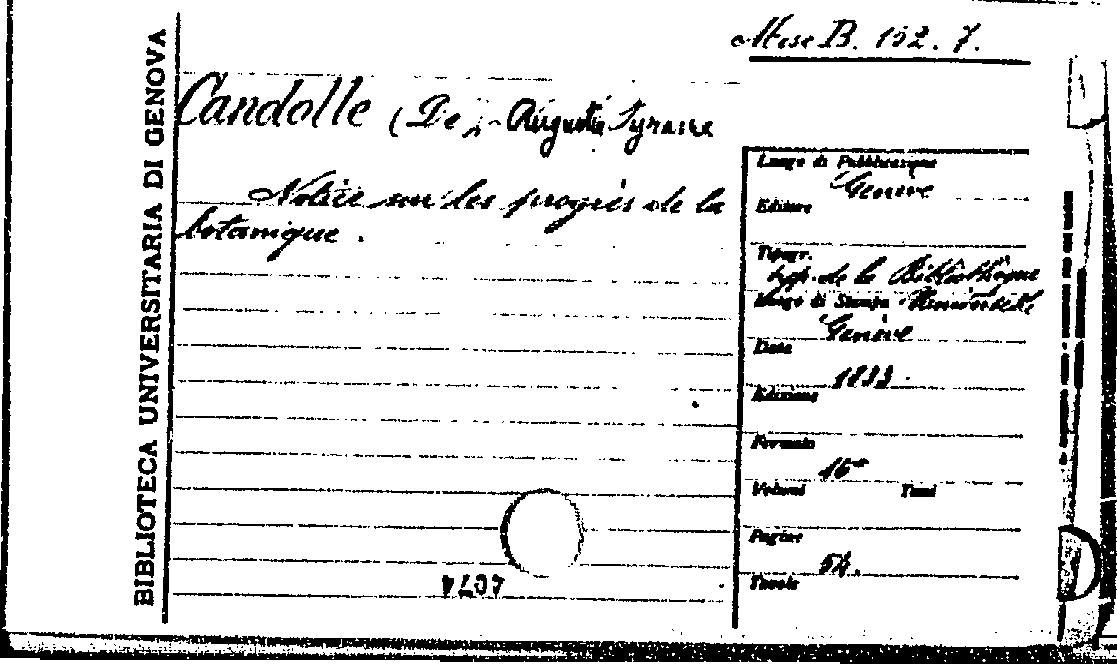 BIBLIOTECA UNIVERSITARIA DI GENOVA
Misc B. 152. 7.
Candolle (De) Augustin Pyrame
Notice sur les progrès de la
botanique.
Luogo di Pubblicazione
Genève
Editore
Tipogr.
typ. de la Bibliothèque
Universelle
Luogo di Stampa
Genève
Data
1833.
Edizione
Formato
16°
Volumi Tomi
Pagine
54.
Tavole